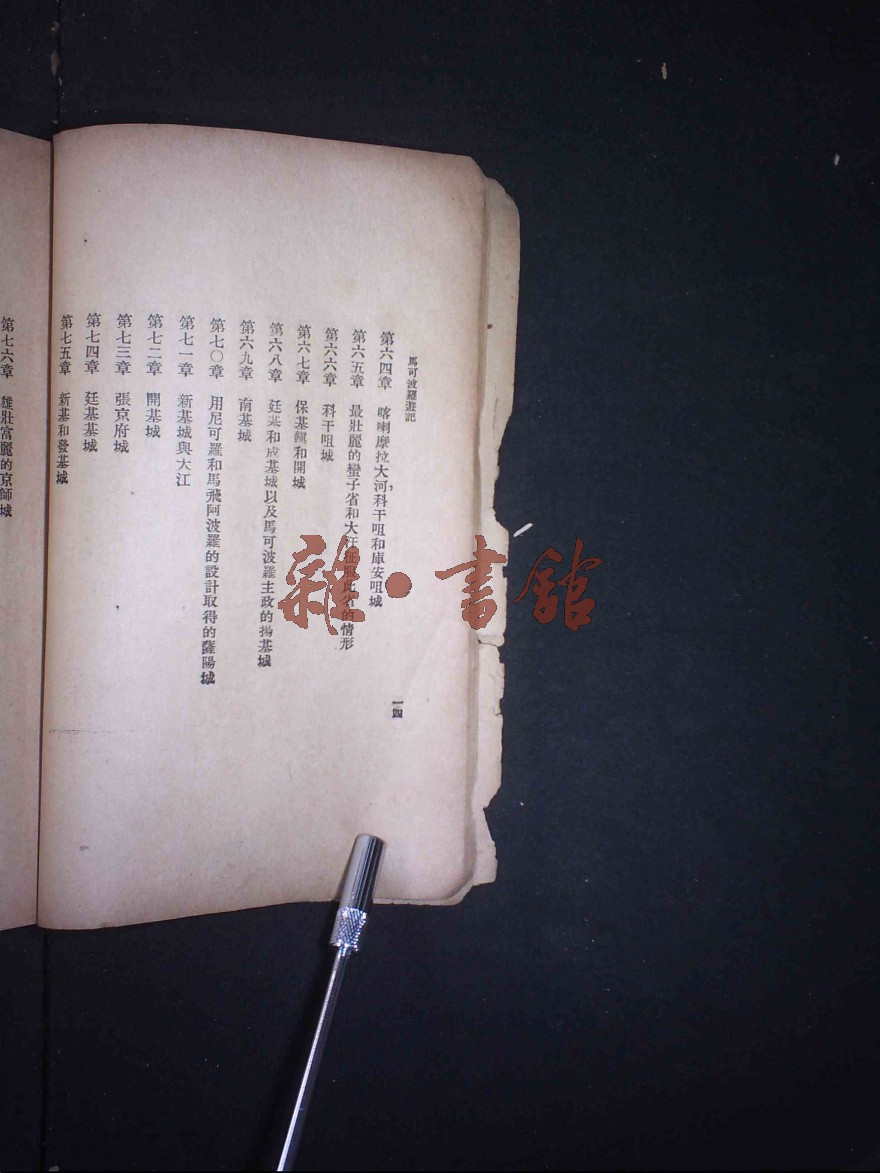 馬可波羅遊記
一四
第六四章 喀喇摩拉大河，科干咀和庫安咀城
第六五章 最壯麗的蠻子省和大汗征服此省的情形
第六六章 科干咀城
第六七章 保基鎮和開城
第六八章 廷基和成基城以及馬可波羅主政的揚基城
第六九章 南基城
第七〇章 用尼可羅和馬飛阿波羅的設計取得的薩陽城
第七一章 新基城與大江
第七二章 開基城
第七三章 張京府城
第七四章 廷基基城
第七五章 新基和發基城
第七六章 雄壯富麗的京師城
雜·書館